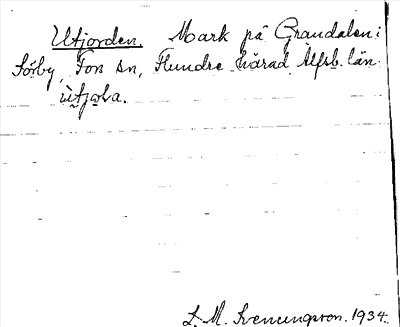 Utjorden. Mark på Grandalen i
Sörby, Fors sn, Flundre härad Älfsb. län.
ùtjoɫa.
L. M. Svenungsson. 1934.